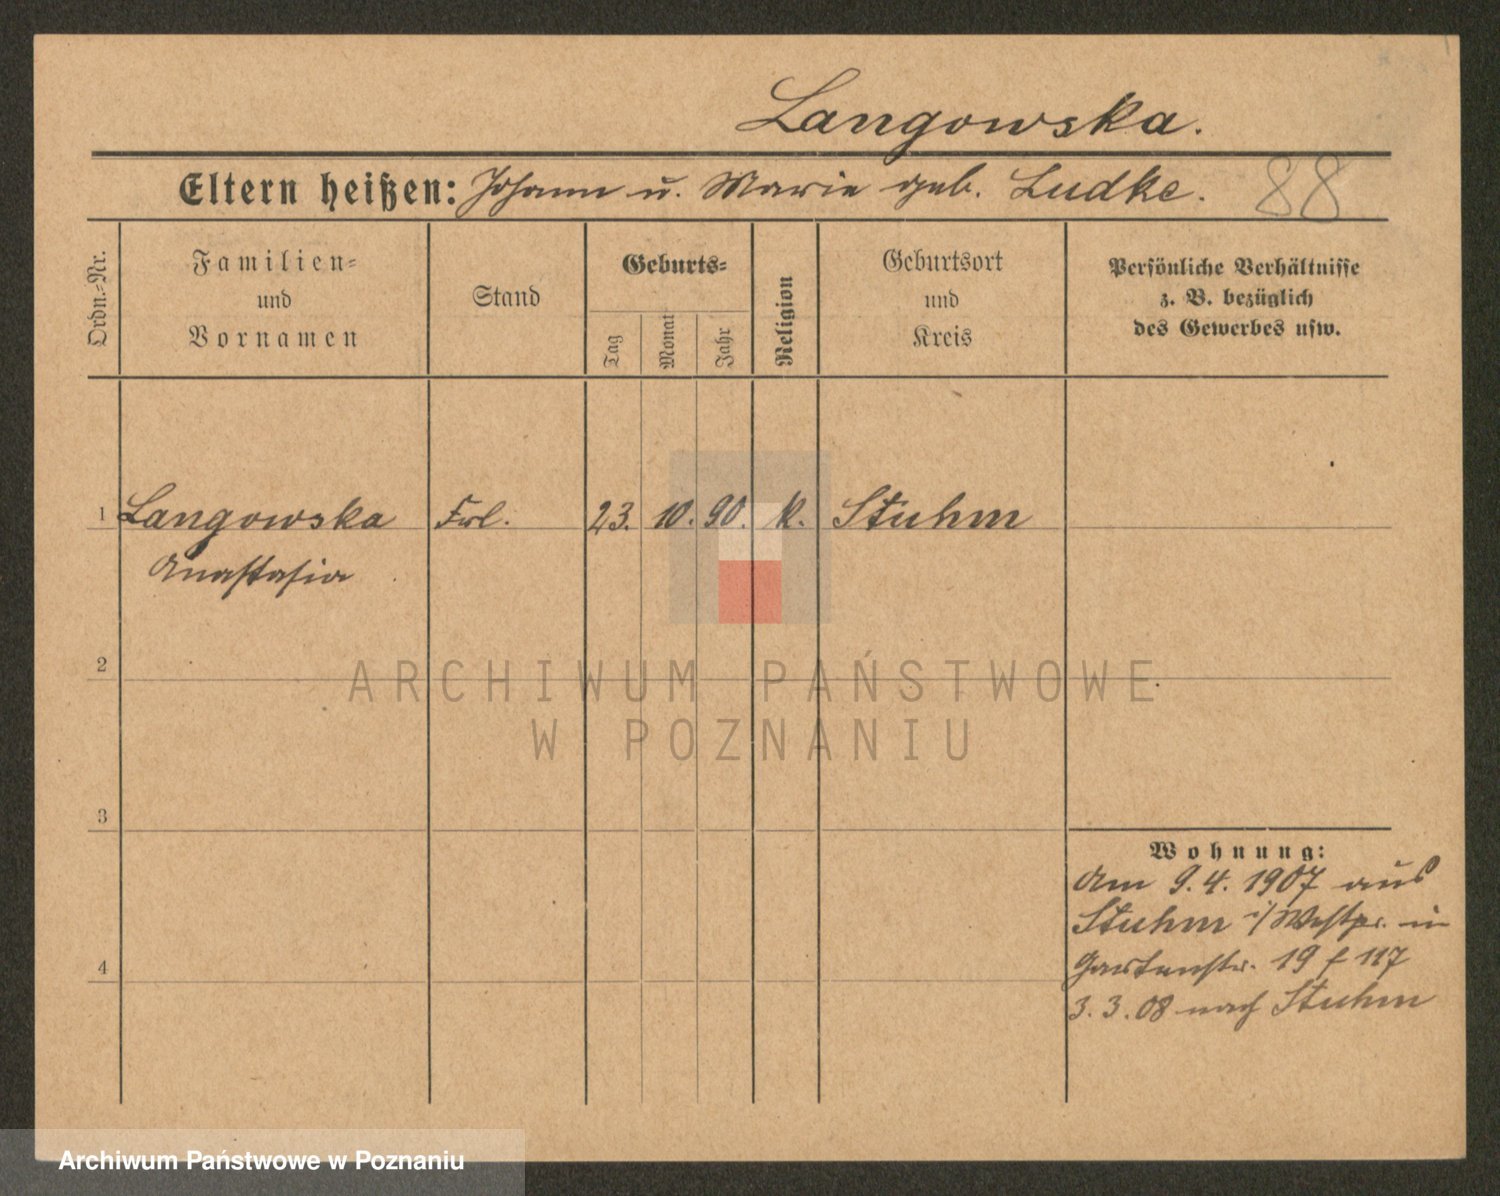 Langowska.
Eltern heißen: Johann u. Marie geb. Ludke. 88
Ordn.=Nr.
Familien=
und
Vornamen
Stand
Geburts=
Tag
Monat
Jahr
Religion
Geburtsort
und
Kreis
Persönliche Verhältnisse
z. B. bezüglich
des Gewerbes usw.
1 Langowska Frl. 23. 10. 90. k. Stuhm
Anastasia
2
ARCHIWUM PAŃSTWOWE
W POZNANIU
3
Wohnung:
Am 9.4. 1907 aus
Stuhm i/Westpr. in
Gartenstr. 19 f 117
4
3.3.08 nach Stuhm
Archiwum Państwowe w Poznaniu